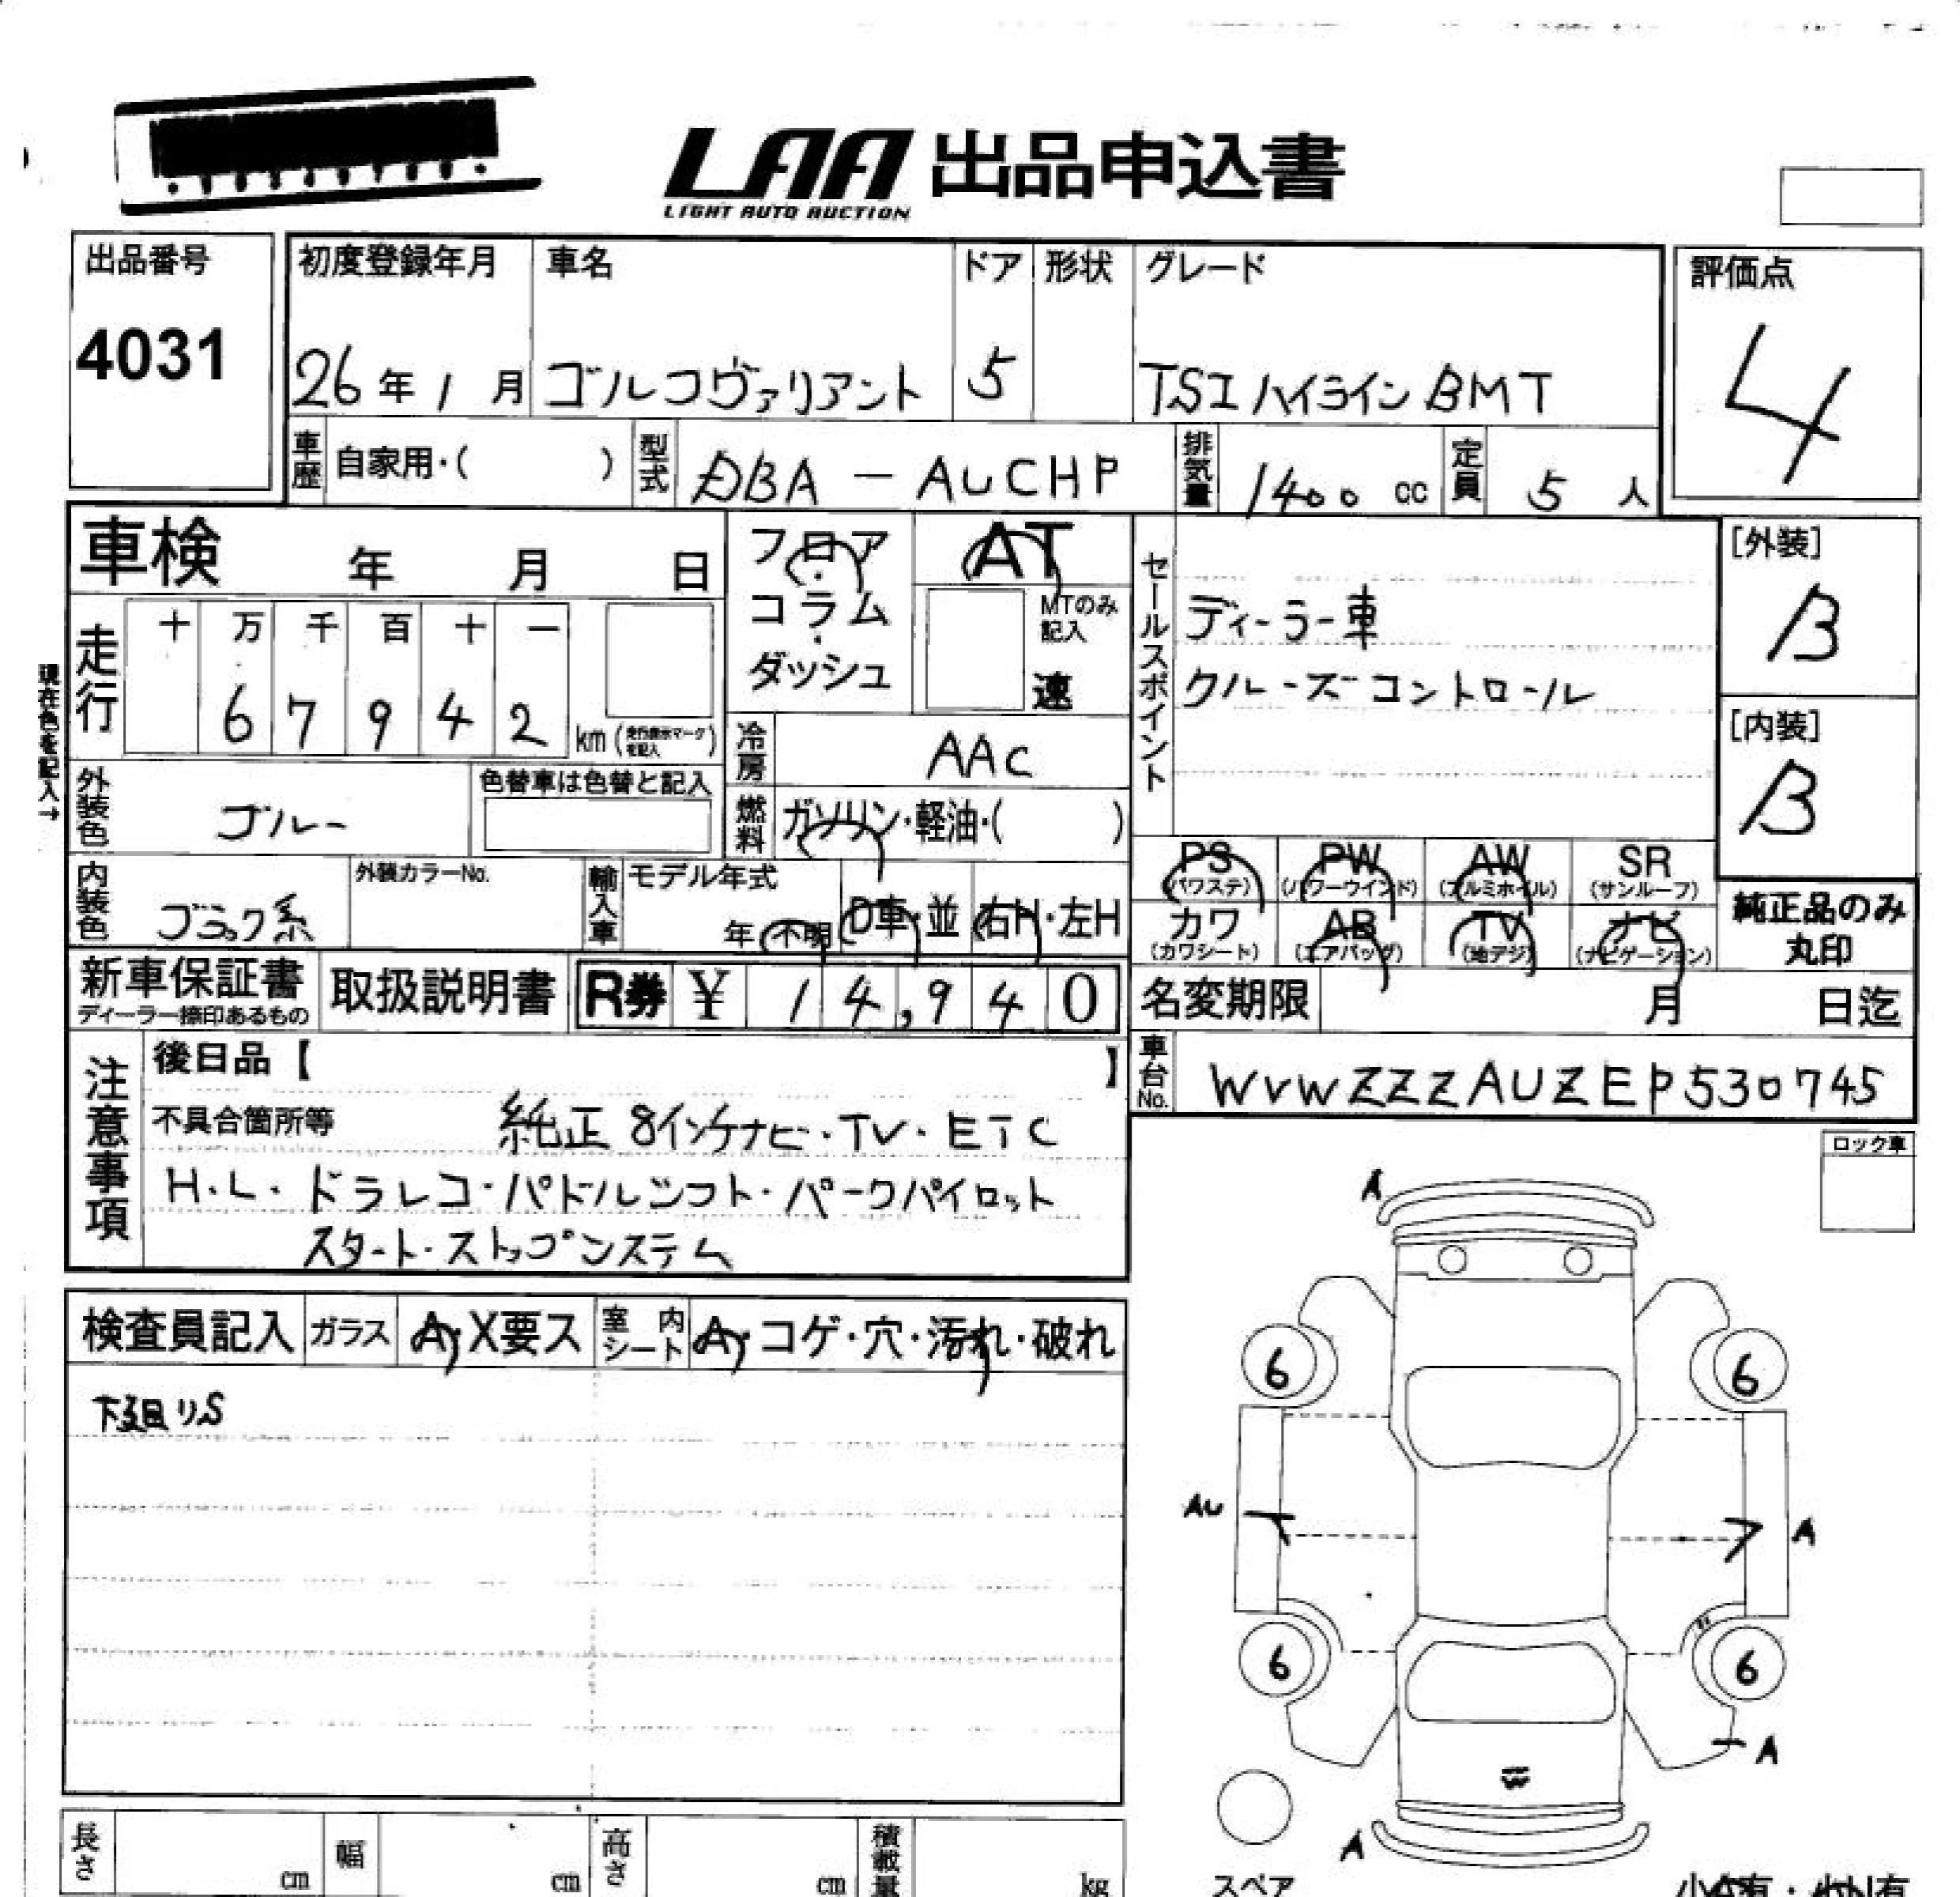 LAA 出品申込書
LIGHT AUTO AUCTION
出品番号
4031
初度登録年月
26年1月
車名
ゴルフヴァリアント
ドア
5
形状
グレード
TSIハイラインBMT
評価点
4
車歴 自家用・( )
型式 DBA - AUCHP
排気量 1400 cc
定員 5 人
車検 年 月 日
フロア・コラム・ダッシュ
AT
MTのみ記入
速
セールスポイント
ディーラー車
クルーズコントロール
[外装]
B
[内装]
B
現在色を記入→
走行
十 万 千 百 十 一
6 7 9 4 2 km (走行表示マークを記入)
冷房 AAC
燃料 ガソリン・軽油・( )
外装色 ブルー
色替車は色替と記入
内装色 ブラック系
外装カラーNo.
輸入車
モデル年式
年・不明
D車・並
右H・左H
PS (パワステ)
PW (パワーウインド)
AW (アルミホイル)
SR (サンルーフ)
カワ (カワシート)
AB (エアバッグ)
TV (地デジ)
ナビ (ナビゲーション)
純正品のみ丸印
新車保証書
ディーラー捺印あるもの
取扱説明書
R券 ¥ 14,940
名変期限 月 日迄
車台No. WVWZZZAUZEP530745
注意事項
後日品【 】
不具合箇所等 純正8インチナビ・TV・ETC
H.L.・ドラレコ・パドルシフト・パークパイロット
スタート・ストップシステム
ロック車
検査員記入
ガラス A・X要ス
室内シート A・コゲ・穴・汚れ・破れ
下廻りS
A
6 6
AU A
6 6
A
W
A
スペア
長さ cm
幅 cm
高さ cm
積載量 kg
小A有・小U有